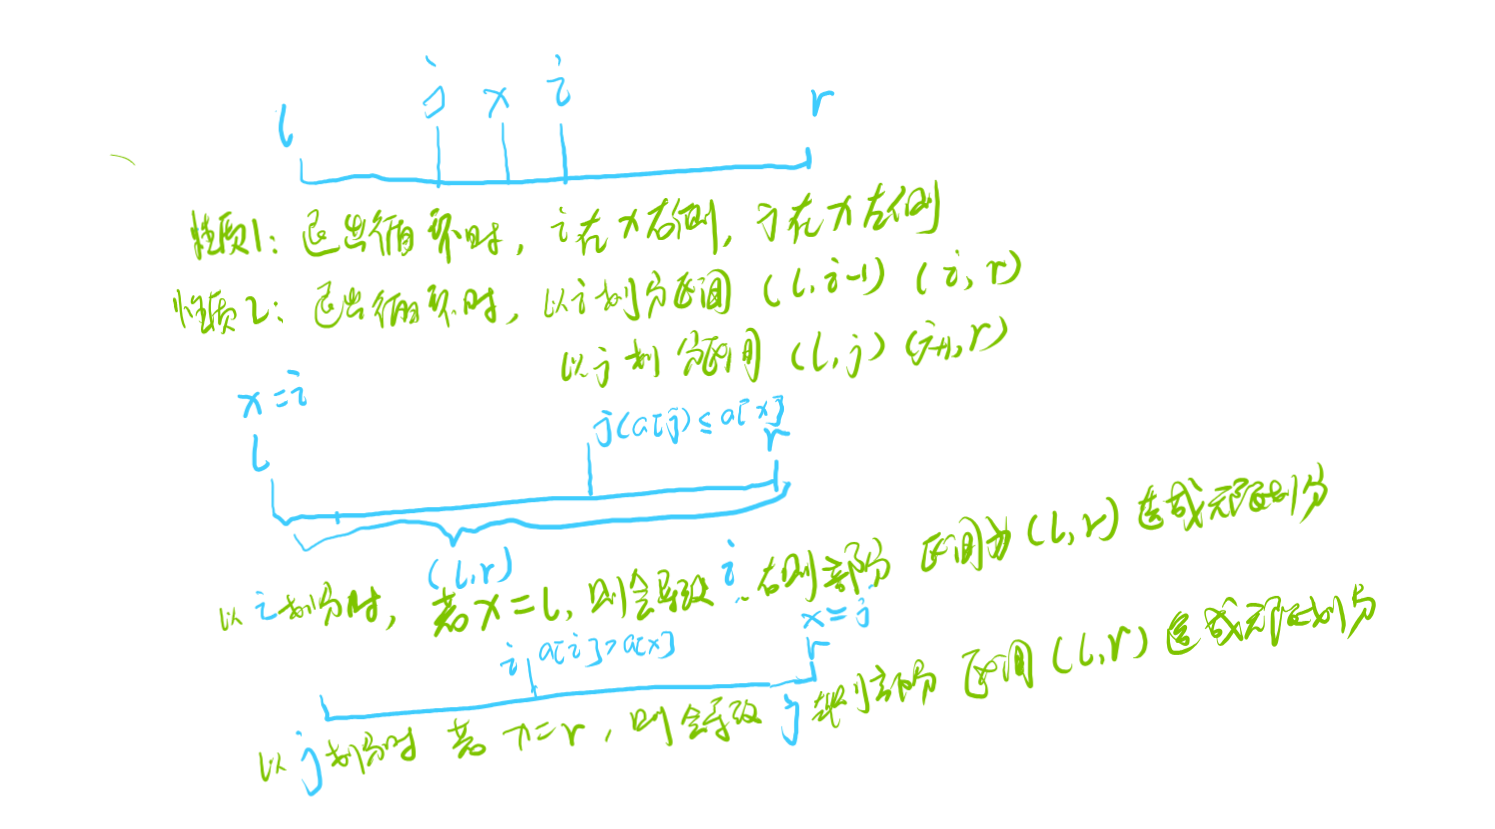 j x i
l r
性质1: 退出循环时, i在x右侧, j在x左侧
性质2: 退出循环时, 以i划分区间 (l, i-1) (i, r)
以j划分区间 (l, j) (j+1, r)
x=i
j(a[j) ≤ a[x]
l r
(l,r)
以i划分时, 若x=l, 则会导致i右侧部分 区间为(l,r) 造成无限划分
x=j
i a[i]>a[x] r
以j划分时 若x=r, 则会导致j左侧部分 区间(l,r) 造成无限划分